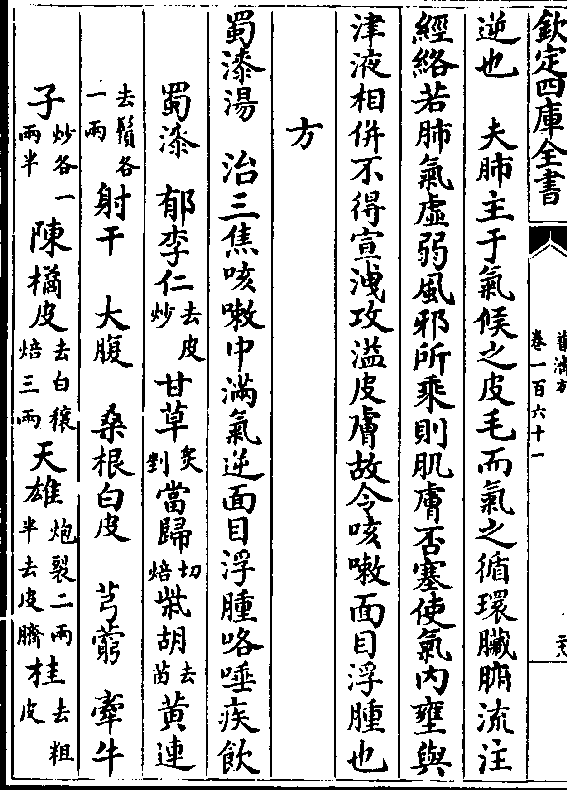 欽定四庫全書
卷一百六十一
逆也　夫肺主于氣候之皮毛而氣之循環臟腑流注
經絡若肺氣虛弱風邪所乘則肌膚否塞使氣內壅與
津液相併不得宣洩攻溢皮膚故令咳嗽面目浮腫也
方
蜀漆湯　治三焦咳嗽中滿氣逆面目浮腫咯唾疾飲
蜀漆　郁李仁去皮炒　甘草炙剉　當歸切焙　柴胡去苗　黃連
去鬚各一兩　射干　大腹　桑根白皮　芎藭　牽牛
子炒各一兩半　陳橘皮去白穰焙三兩　天雄炮裂二兩半去皮臍　桂去粗皮